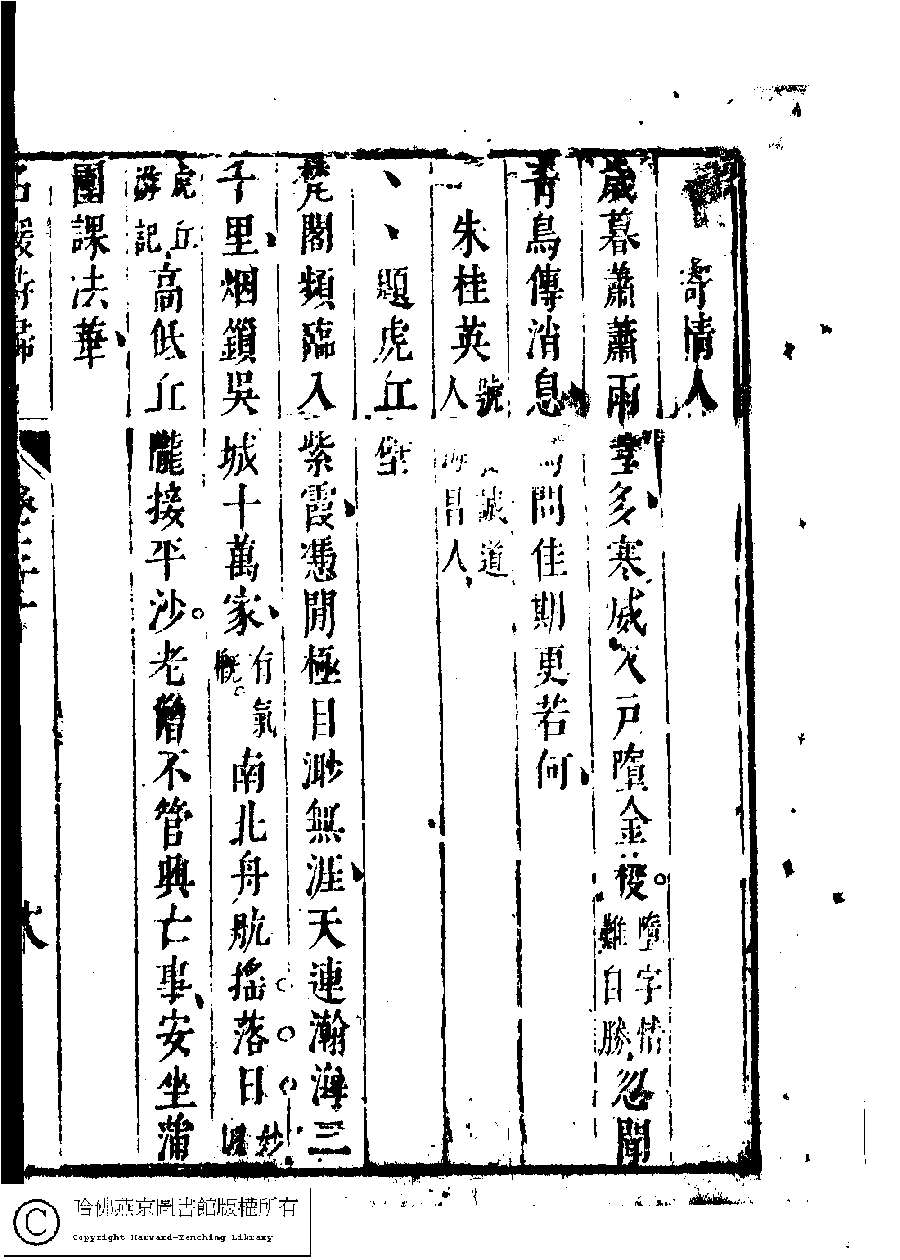 寄情人
歲暮蕭蕭雨雪多寒威入戶墮金梭墮字情難自勝忽聞
青鳥傳治息問佳期更若何
朱桂英號誠道人海昌人
題虎丘壁
梵閣頻臨入紫霞憑閒極目渺無涯天連瀚海三
千里烟鎖吳城十萬家有氣概南北舟航搖落日妙
虎丘游記高低丘隴接平沙老僧不管興亡事安坐蒲
團課法華
哈佛燕京圖書館版權所有
Copyright Harvard-Yenching Library